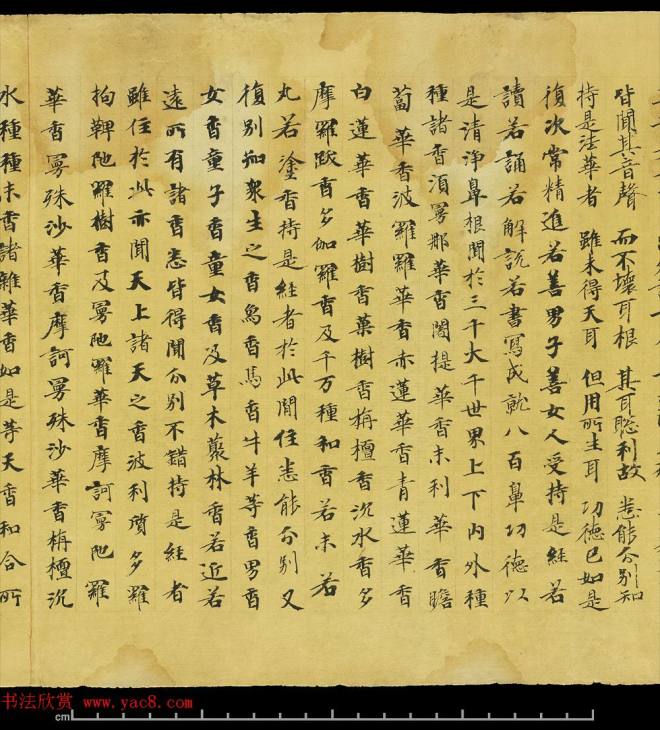 皆聞其音聲 而不壞耳根 其耳聡利故 悉能分別知
持是法華者 雖未得天耳 但用所生耳 功德已如是
復次常精進若善男子善女人受持是經若
讀若誦若解說若書寫成就八百鼻功德以
是清淨鼻根聞於三千大千世界上下內外種
種諸香須曼那華香闍提華香末利華香瞻
蔔華香波羅羅華香赤蓮華香青蓮華香
白蓮華香華樹香菓樹香栴檀香沉水香多
摩羅跋香多伽羅香及千万種和香若末若
丸若塗香持是經者於此間住悉能分別又
復別知衆生之香象香馬香牛羊等香男香
女香童子香童女香及草木藂林香若近若
遠所有諸香悉皆得聞分別不錯持是經者
雖住於此亦聞天上諸天之香波利質多羅
拘鞞陁羅樹香及曼陁羅華香摩訶曼陁羅
華香曼殊沙華香摩訶曼殊沙華香栴檀沉
水種種末香諸雜華香如是等天香和合所
书法欣赏 www.yac8.com
cm